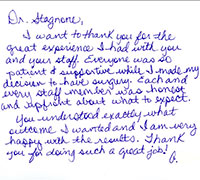 Dr. Stagnone,
I want to thank you for the
great experience I had with you
and your staff. Everyone was so
patient & supportive while I made my
decision to have surgery. Each and
every staff member was honest
and upfront about what to expect.
You understood exactly what
outcome I wanted and I am very
happy with the results. Thank
you for doing such a great job!